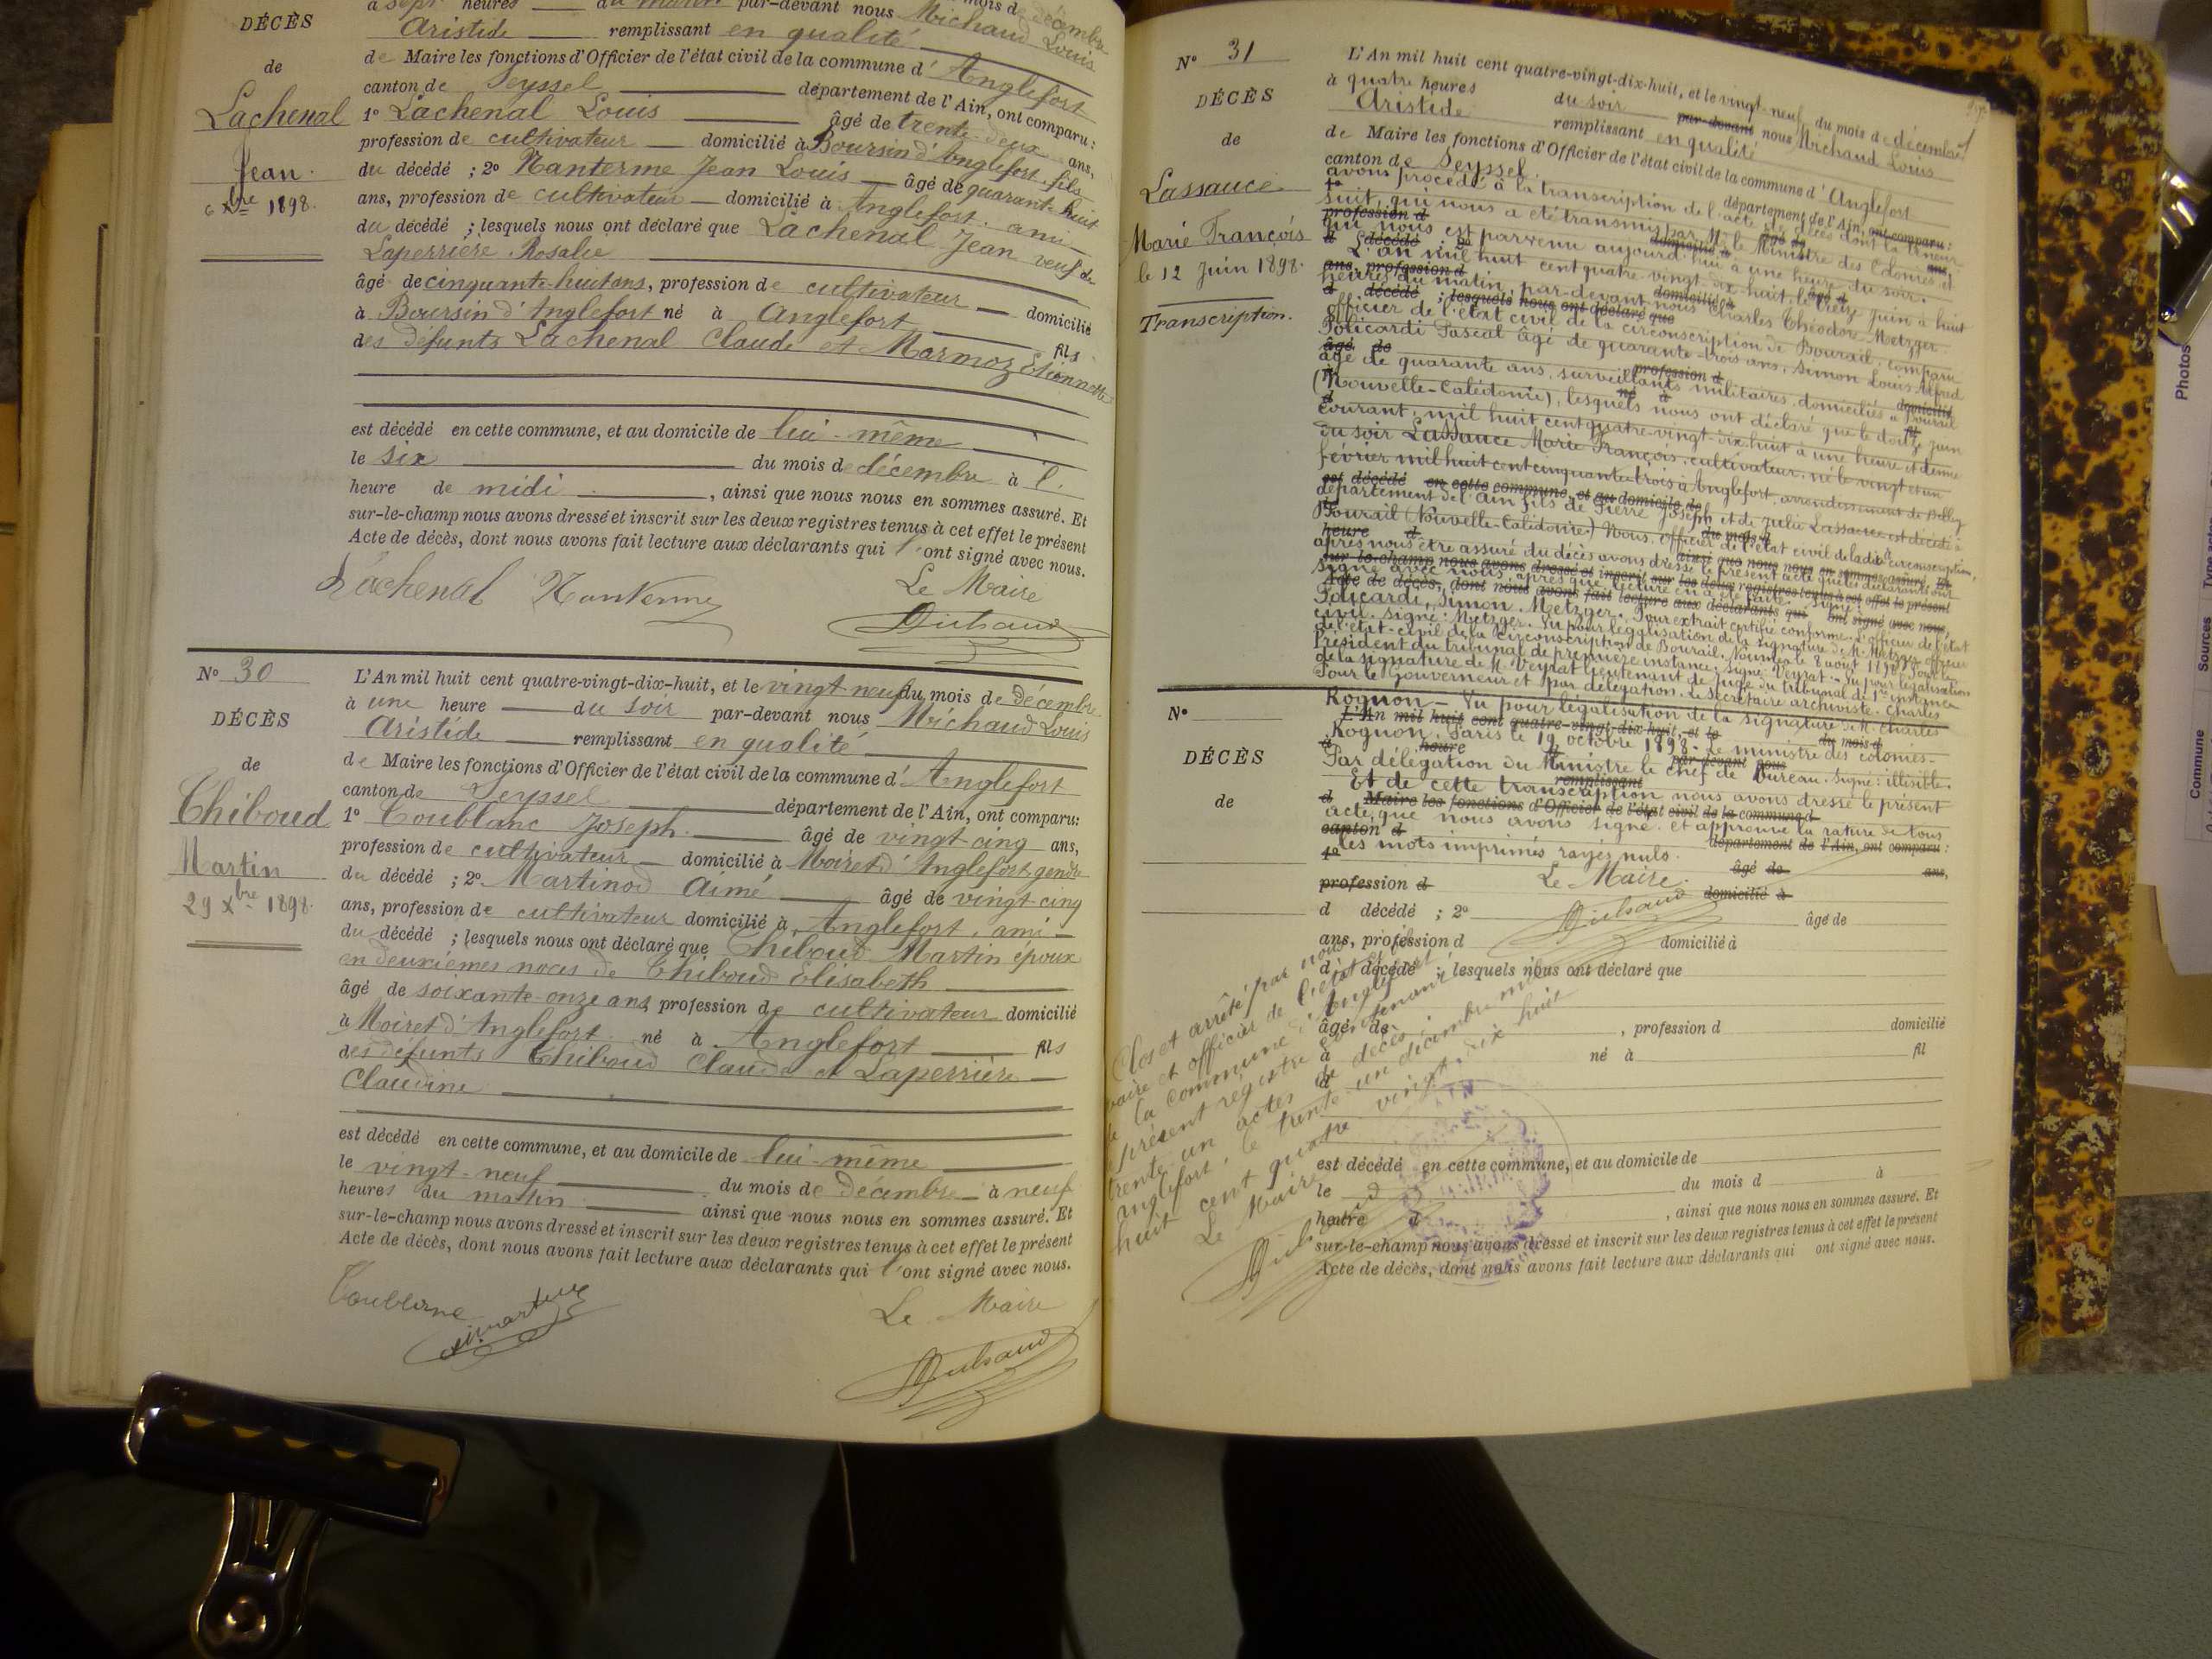 DÉCÈS
de
Lachenal
Jean
6 Xbre 1898.
à sept heures du matin par-devant nous Michaud Louis
Aristide remplissant en qualité
de Maire les fonctions d'Officier de l'état civil de la commune d'Anglefort
canton de Seyssel département de l'Ain, ont comparu:
1º Lachenal Louis âgé de trente-deux ans,
profession de cultivateur domicilié à Boursin d'Anglefort, fils
du décédé ; 2º Nanterme Jean Louis âgé de quarante-huit
ans, profession de cultivateur domicilié à Anglefort, ami
du décédé ; lesquels nous ont déclaré que Lachenal Jean veuf de
Laperrière Rosalie
âgé de cinquante-huit ans, profession de cultivateur domicilié
à Boursin d'Anglefort né à Anglefort fils
des défunts Lachenal Claude et Marmoz Etiennette
est décédé en cette commune, et au domicile de lui-même
le six du mois de décembre à l'
heure de midi, ainsi que nous nous en sommes assuré. Et
sur-le-champ nous avons dressé et inscrit sur les deux registres tenus à cet effet le présent
Acte de décès, dont nous avons fait lecture aux déclarants qui l'ont signé avec nous.
Lachenal Nanterme Le Maire
Michaud
Nº 30
DÉCÈS
de
Thiboud
Martin
29 Xbre 1898.
L'An mil huit cent quatre-vingt-dix-huit, et le vingt-neuf du mois de décembre
à une heure du soir par-devant nous Michaud Louis
Aristide remplissant en qualité
de Maire les fonctions d'Officier de l'état civil de la commune d'Anglefort
canton de Seyssel département de l'Ain, ont comparu:
1º Coublanc Joseph âgé de vingt-cinq ans,
profession de cultivateur domicilié à Moiret d'Anglefort, gendre
du décédé ; 2º Martinod Aimé âgé de vingt cinq
ans, profession de cultivateur domicilié à Anglefort, ami
du décédé ; lesquels nous ont déclaré que Thiboud Martin époux
en deuxièmes noces de Thiboud Elisabeth
âgé de soixante-onze ans, profession de cultivateur domicilié
à Moiret d'Anglefort né à Anglefort fils
des défunts Thiboud Claude et Laperrière
Claudine
est décédé en cette commune, et au domicile de lui-même
le vingt-neuf du mois de décembre à neuf
heures du matin ainsi que nous nous en sommes assuré. Et
sur-le-champ nous avons dressé et inscrit sur les deux registres tenus à cet effet le présent
Acte de décès, dont nous avons fait lecture aux déclarants qui l'ont signé avec nous.
Coublanc Le Maire
Michaud
Nº 31
DÉCÈS
de
Lassauce
Marie François
le 12 Juin 1898.
Transcription.
L'An mil huit cent quatre-vingt-dix-huit, et le vingt-neuf du mois de décembre
à quatre heures du soir par-devant nous Michaud Louis
Aristide remplissant en qualité
de Maire les fonctions d'Officier de l'état civil de la commune d'Anglefort
canton de Seyssel. département de l'Ain, ont comparu:
avons procédé à la transcription de l'acte de décès dont la teneur
suit, qui nous a été transmis par Mr le Ministre des Colonies et
qui nous est parvenu aujourd'hui à une heure du soir.
L'an mil huit cent quatre-vingt-dix-huit, le treize juin à huit
heures du matin, par-devant nous Charles Théodore Metzger
officier de l'état civil de la circonscription de Bourail, comparu
Policardi Pascal âgé de quarante-trois ans, Simon Louis Alfred
âgé de quarante ans, surveillants militaires, domiciliés à Bourail
(Nouvelle-Calédonie), lesquels nous ont déclaré que le douze juin
courant, mil huit cent quatre-vingt-dix-huit à une heure et demie
du soir Lassauce Marie François, cultivateur, né le vingt et un
février mil huit cent cinquante-trois à Anglefort, arrondissement de Belley
département de l'Ain fils de Pierre Joseph et de Julie Lassauce est décédé à
Bourail (Nouvelle-Calédonie) Nous, officier de l'état civil de ladite circonscription,
après nous être assuré du décès avons dressé le présent acte que les déclarants ont
signé avec nous, après que lecture en a été faite. Signé:
Policardi, Simon. Metzger. Pour extrait certifié conforme. L'officier de l'état
civil. Signé: Metzger. Vu pour légalisation de la signature de M. Metzger officier
de l'état-civil de la circonscription de Bourail. Nouméa le 8 août 1898. Pour le
Président du tribunal de première instance. Signé: Veyrat. Vu pour légalisation
de la signature de M. Veyrat lieutenant de juge du tribunal de 1re instance
Pour le Gouverneur et par délégation. Le Secrétaire archiviste. Charles
Rognon — Vu pour légalisation de la signature de M. Charles
Rognon. Paris le 19 octobre 1898. Le ministre des colonies.
Par délégation du Ministre le chef de bureau. Signé: illisible.
Et de cette transcription nous avons dressé le présent
acte que nous avons signé. et approuvé la rature de tous
les mots imprimés rayés nuls.
Le Maire.
Michaud
Nº
DÉCÈS
de
L'An mil huit cent quatre-vingt-dix-huit, et le du mois d
heure par-devant nous
remplissant
d Maire les fonctions d'Officier de l'état civil de la commune d
canton d département de l'Ain, ont comparu:
1º âgé de ans,
profession d domicilié à
d décédé ; 2º âgé de
ans, profession d domicilié à
d décédé ; lesquels nous ont déclaré que
âgé de , profession d domicilié
à né à fil
d
est décédé en cette commune, et au domicile de
le du mois d à
heure d , ainsi que nous nous en sommes assuré. Et
sur-le-champ nous avons dressé et inscrit sur les deux registres tenus à cet effet le présent
Acte de décès, dont nous avons fait lecture aux déclarants qui ont signé avec nous.
Clos et arrêté par nous
maire et officier de l'état civil
de la commune d'Anglefort le
présent registre contenant
trente un actes de décès.
Anglefort, le trente-un décembre mil
huit cent quatre vingt dix huit
Le Maire
Michaud
Photos
Commune Sources Type acte